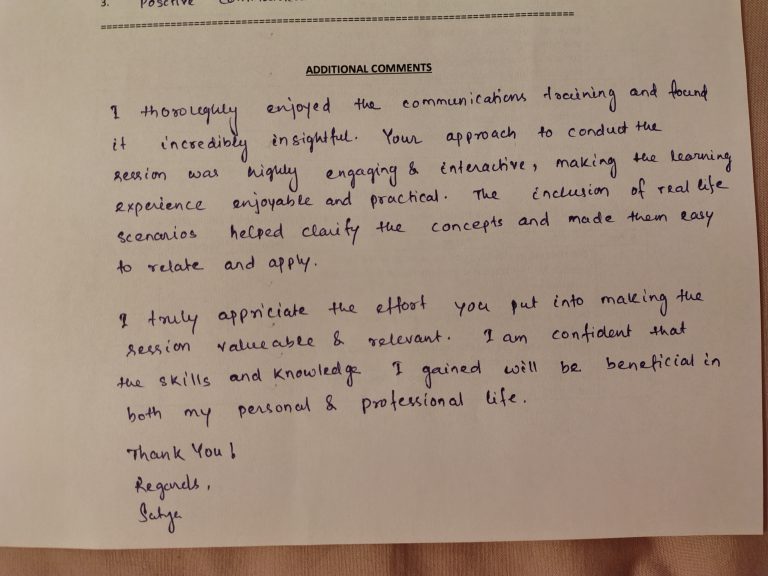 3. Positive
ADDITIONAL COMMENTS
I thoroughly enjoyed the communications training and found
it incredibly insightful. Your approach to conduct the
session was highly engaging & interactive, making the learning
experience enjoyable and practical. The inclusion of real life
scenarios helped clarify the concepts and made them easy
to relate and apply.
I truly appriciate the effort you put into making the
session valueable & relevant. I am confident that
the skills and knowledge I gained will be beneficial in
both my personal & professional life.
Thank You!
Regards,
Satya